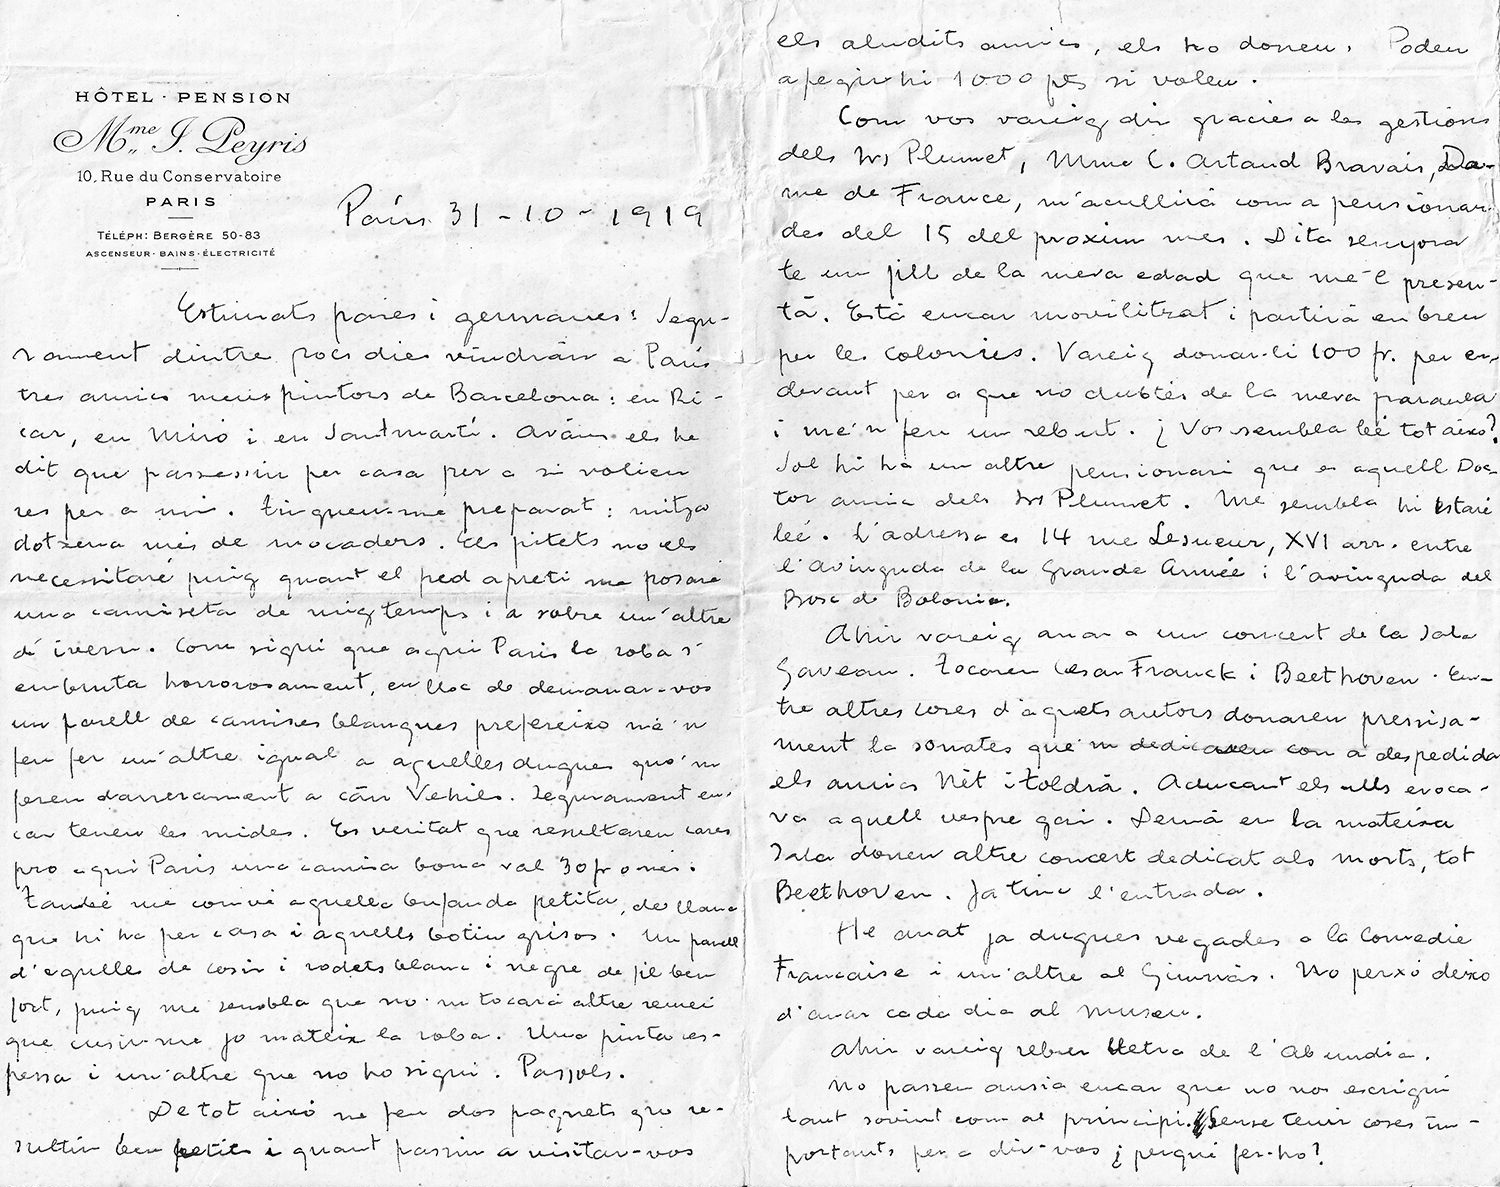 HÔTEL · PENSION
Mme J. Peyris
10, Rue du Conservatoire
PARIS
TÉLÉPH: BERGÈRE 50-83
ASCENSEUR · BAINS · ÉLECTRICITÉ
París 31-10-1919
Estimats pares i germanes: Segu-
rament dintre pocs dies vindràn a París
tres amics meus pintors de Barcelona: en Ri-
car, en Miró i en Santmartí. Avans els he
dit que passessin per casa per a si volieu
res per a mi. Tingueu-me preparat: mitza
dotzena més de mocadors. Els pitets no els
necessitaré puig quant el fred apreti me posaré
una camiseta de mig temps i a sobre un'altre
d'ivern. Com sigui que aqui París la roba s'
embruta horrorosament, en lloc de demanar-vos
un parell de camises blanques prefereixo me'n
feu fer un'altre igual a aquelles dugues que'm
fereu darrerament a càn Vehils. Segurament en-
car teneu les mides. Es veritat que resultaren cares
pro aqui París una camisa bona val 30 fr o més.
També me convé aquella bufanda petita, de llana
que hi ha per casa i aquells botins grisos. Un parell
d'agulles de cosir i rodets blanc i negre de fil ben
fort, puig me sembla que no'm tocarà altre remei
que cusir-me jo mateix la roba. Una pinta es-
pessa i un'altre que no ho sigui. Passols.
De tot això ne feu dos paquets que re-
sultin ben petits i quant passin a visitar-vos
els aludits amics, els ho doneu. Podeu
afegir hi 1000 pts si voleu.
Com vos vareig dir gracies a les gestions
dels Srs Plumet, Mme C. Artaud Bravais, Da-
me de France, m'acullirà com a pensionari
des del 15 del proxim mes. Dita senyora
te un fill de la meva edad que me'l presen-
tà. Està encar movilitzat i partirà en breu
per les colonies. Vareig donar-li 100 fr. per en-
devant per a que no dubtés de la meva paraula
i me'n feu un rebut. ¿Vos sembla bé tot aixo?
Sol hi ha un altre pensionari que es aquell Doc-
tor amic dels Srs Plumet. Me sembla hi estaré
bé. L'adressa es 14 rue Lesueur, XVI arr. entre
l'Avinguda de la Grande Armée i l'avinguda del
Bosc de Bolonia.
Ahir vareig anar a un concert de la Sala
Gaveau. Tocaren Cesar Franck i Beethoven. En-
tre altres coses d'aquets autors donaren pressisa-
ment la sonates que'm dedicaren com a despedida
els amics Nèt i Toldrà. Aducant els ulls evoca-
va aquell vespre gai. Demà en la mateixa
Sala donen altre concert dedicat als morts, tot
Beethoven. Ja tinc l'entrada.
He anat ja dugues vegades a la Comedie
Francaise i un'altre al Gimnàs. No perxó deixo
d'anar cada dia al museu.
Ahir vareig rebrer lletra de l'Abundia.
No passeu ansia encar que no vos escrigui
tant sovint com al principi. Sense tenir coses im-
portants per a dir-vos ¿perqué fer-ho?